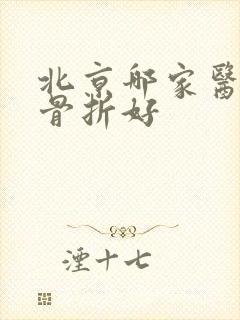 北京邮家醫
骨折好
湮十七